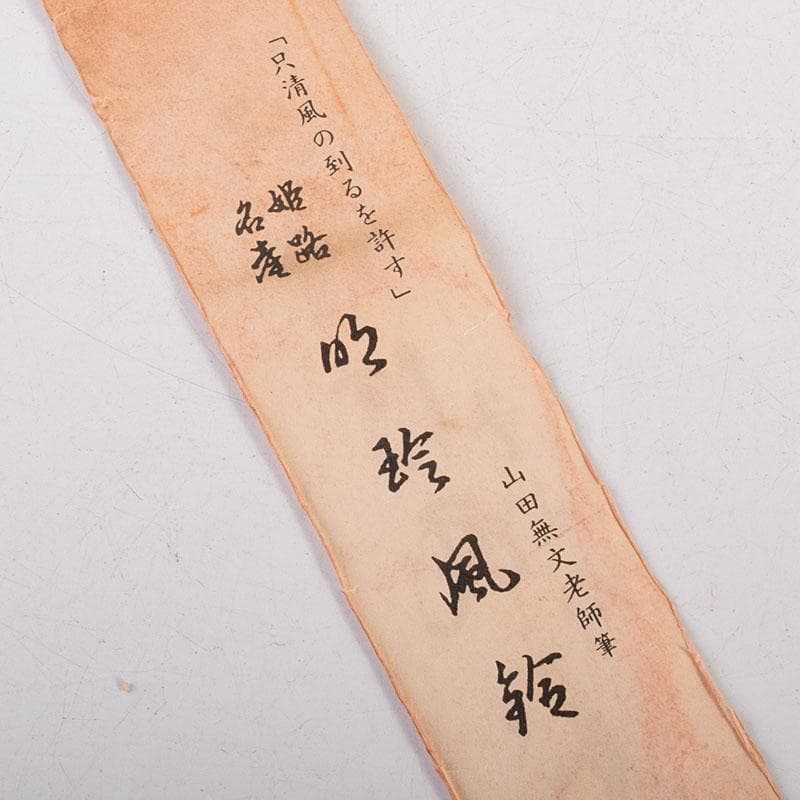 「只清風の到るを許す」
山田無文老師筆
姫路
名産
明珍風鈴